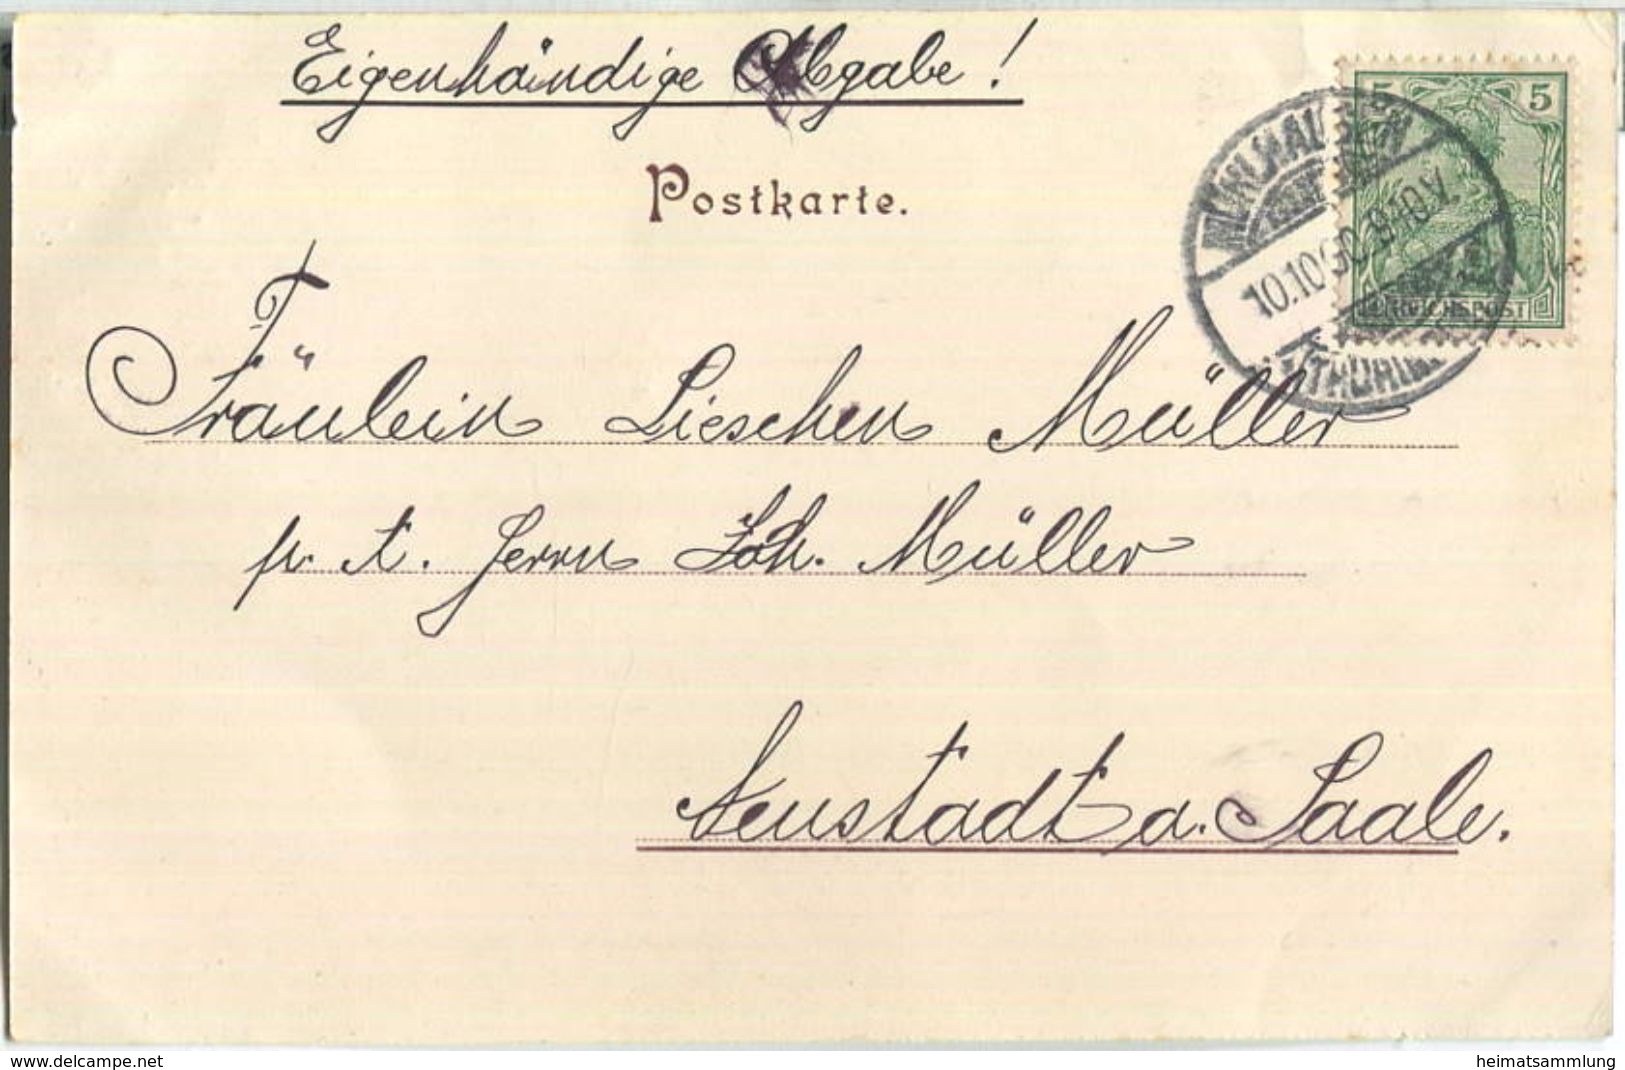 Eigenhändige Abgabe!
Postkarte.
5 5
MÜHLHAUSEN
10.10.00. 9-10.V.
REICHSPOST
Fräulein Lieschen Müller
p. t. Herrn Joh. Müller
Neustadt a. Saale.
www.delcampe.net
heimatsammlung